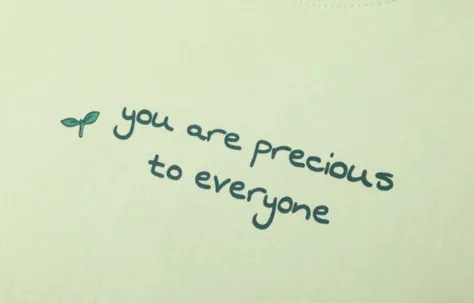 you are precious
to everyone